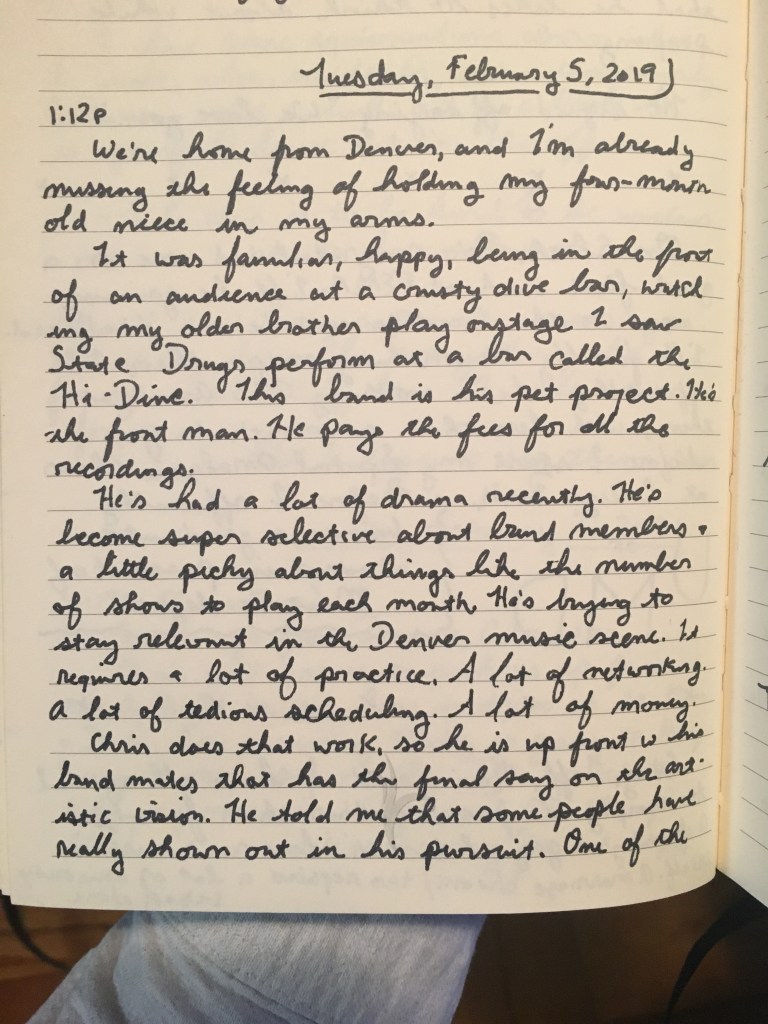 Tuesday, February 5, 2019
1:12p
We're home from Denver, and I'm already
missing the feeling of holding my four-month
old niece in my arms.
It was familiar, happy, being in the front
of an audience at a crusty dive bar, watch
ing my older brother play onstage I saw
State Drugs perform at a bar called the
Hi-Dive. This band is his pet project. He's
the front man. He pays the fees for all the
recordings.
He's had a lot of drama recently. He's
become super selective about band members &
a little picky about things like the number
of shows to play each month. He's trying to
stay relevant in the Denver music scene. It
requires a lot of practice. A lot of networking.
A lot of tedious scheduling. A lot of money.
Chris does that work, so he is up front w his
band mates that has the final say on the art-
istic vision. He told me that some people have
really shown out in his pursuit. One of the